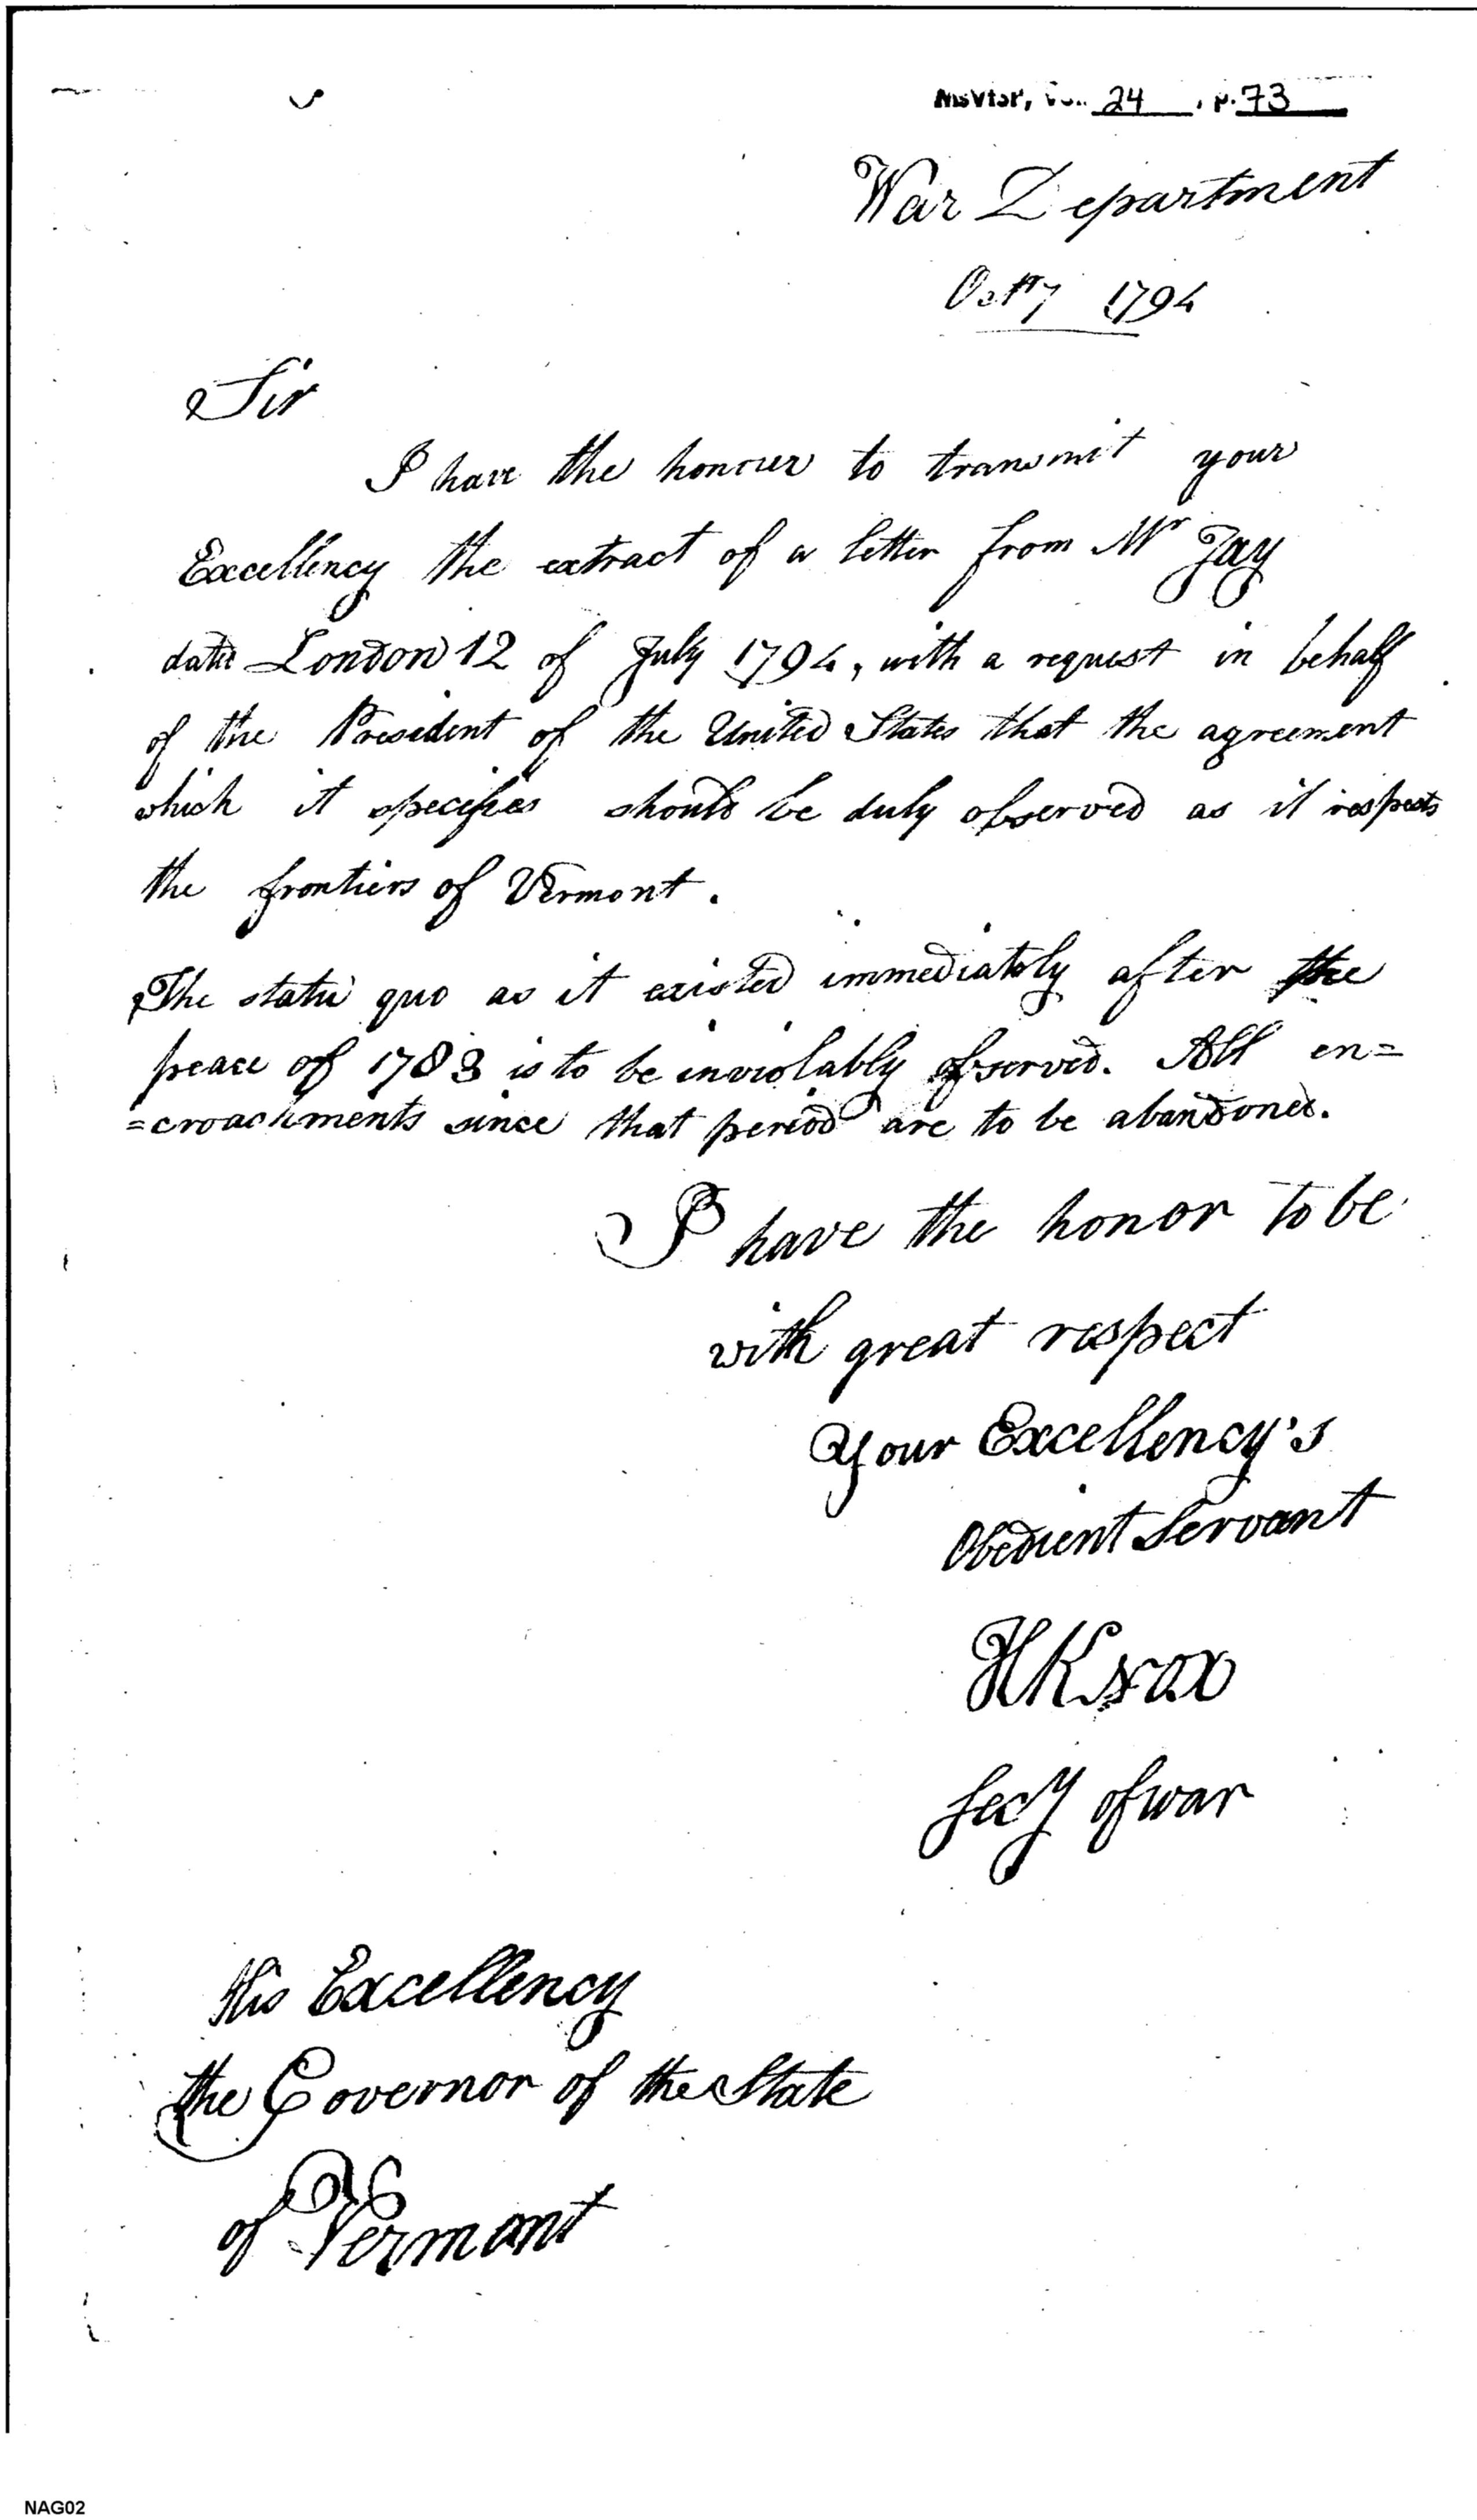 MsVtSP, Vol. 24, p. 73
War Department
Octr 7 1794
Sir
I have the honour to transmit your
Excellency the extract of a letter from Mr Jay
date London 12 of July 1794, with a request in behalf
of the President of the United States that the agreement
which it specifies should be duly observed as it respects
the frontiers of Vermont.
The statu quo as it existed immediately after the
peace of 1783 is to be inviolably observed. All en=
=croachments since that period are to be abandoned.
I have the honor to be
with great respect
Your Excellency's
Obedient Servant
HKnox
Secy of war
His Excellency
the Governor of the State
of Vermont
NAG02